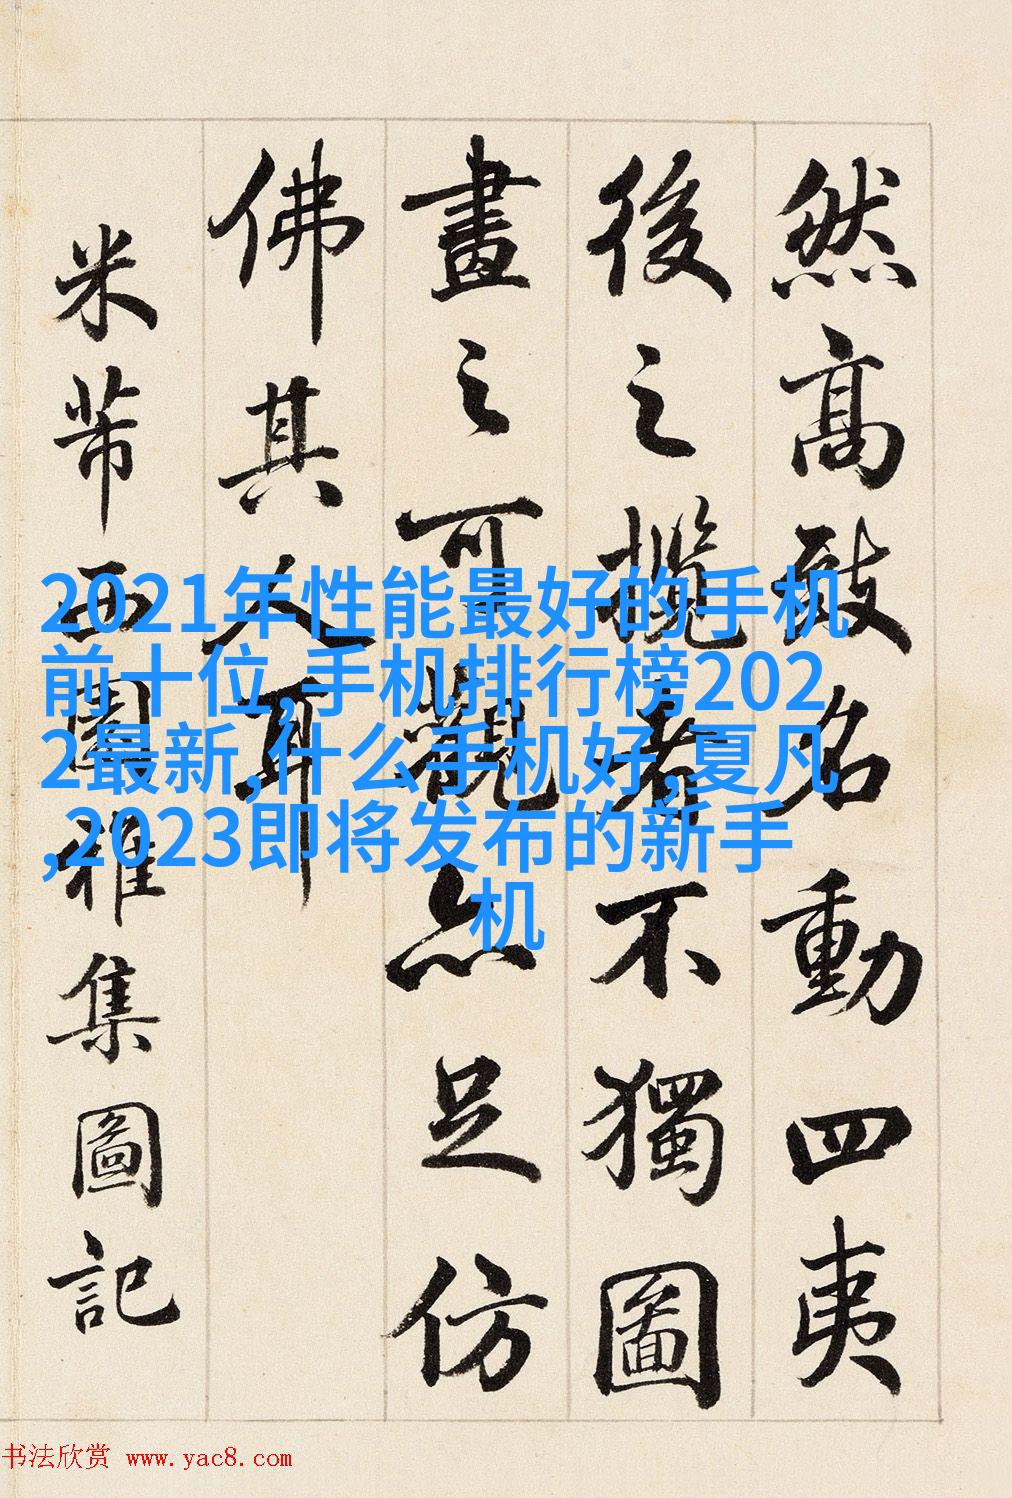 然高致名動四夷
後之攬者不獨圖
畫之可觀亦足仿
佛其人耳
米芾西園雅集圖記
2021年性能最好的手机
前十位,手机排行榜202
2最新,什么手机好,夏凡
,2023即将发布的新手
机
书法欣赏 www.yac8.com